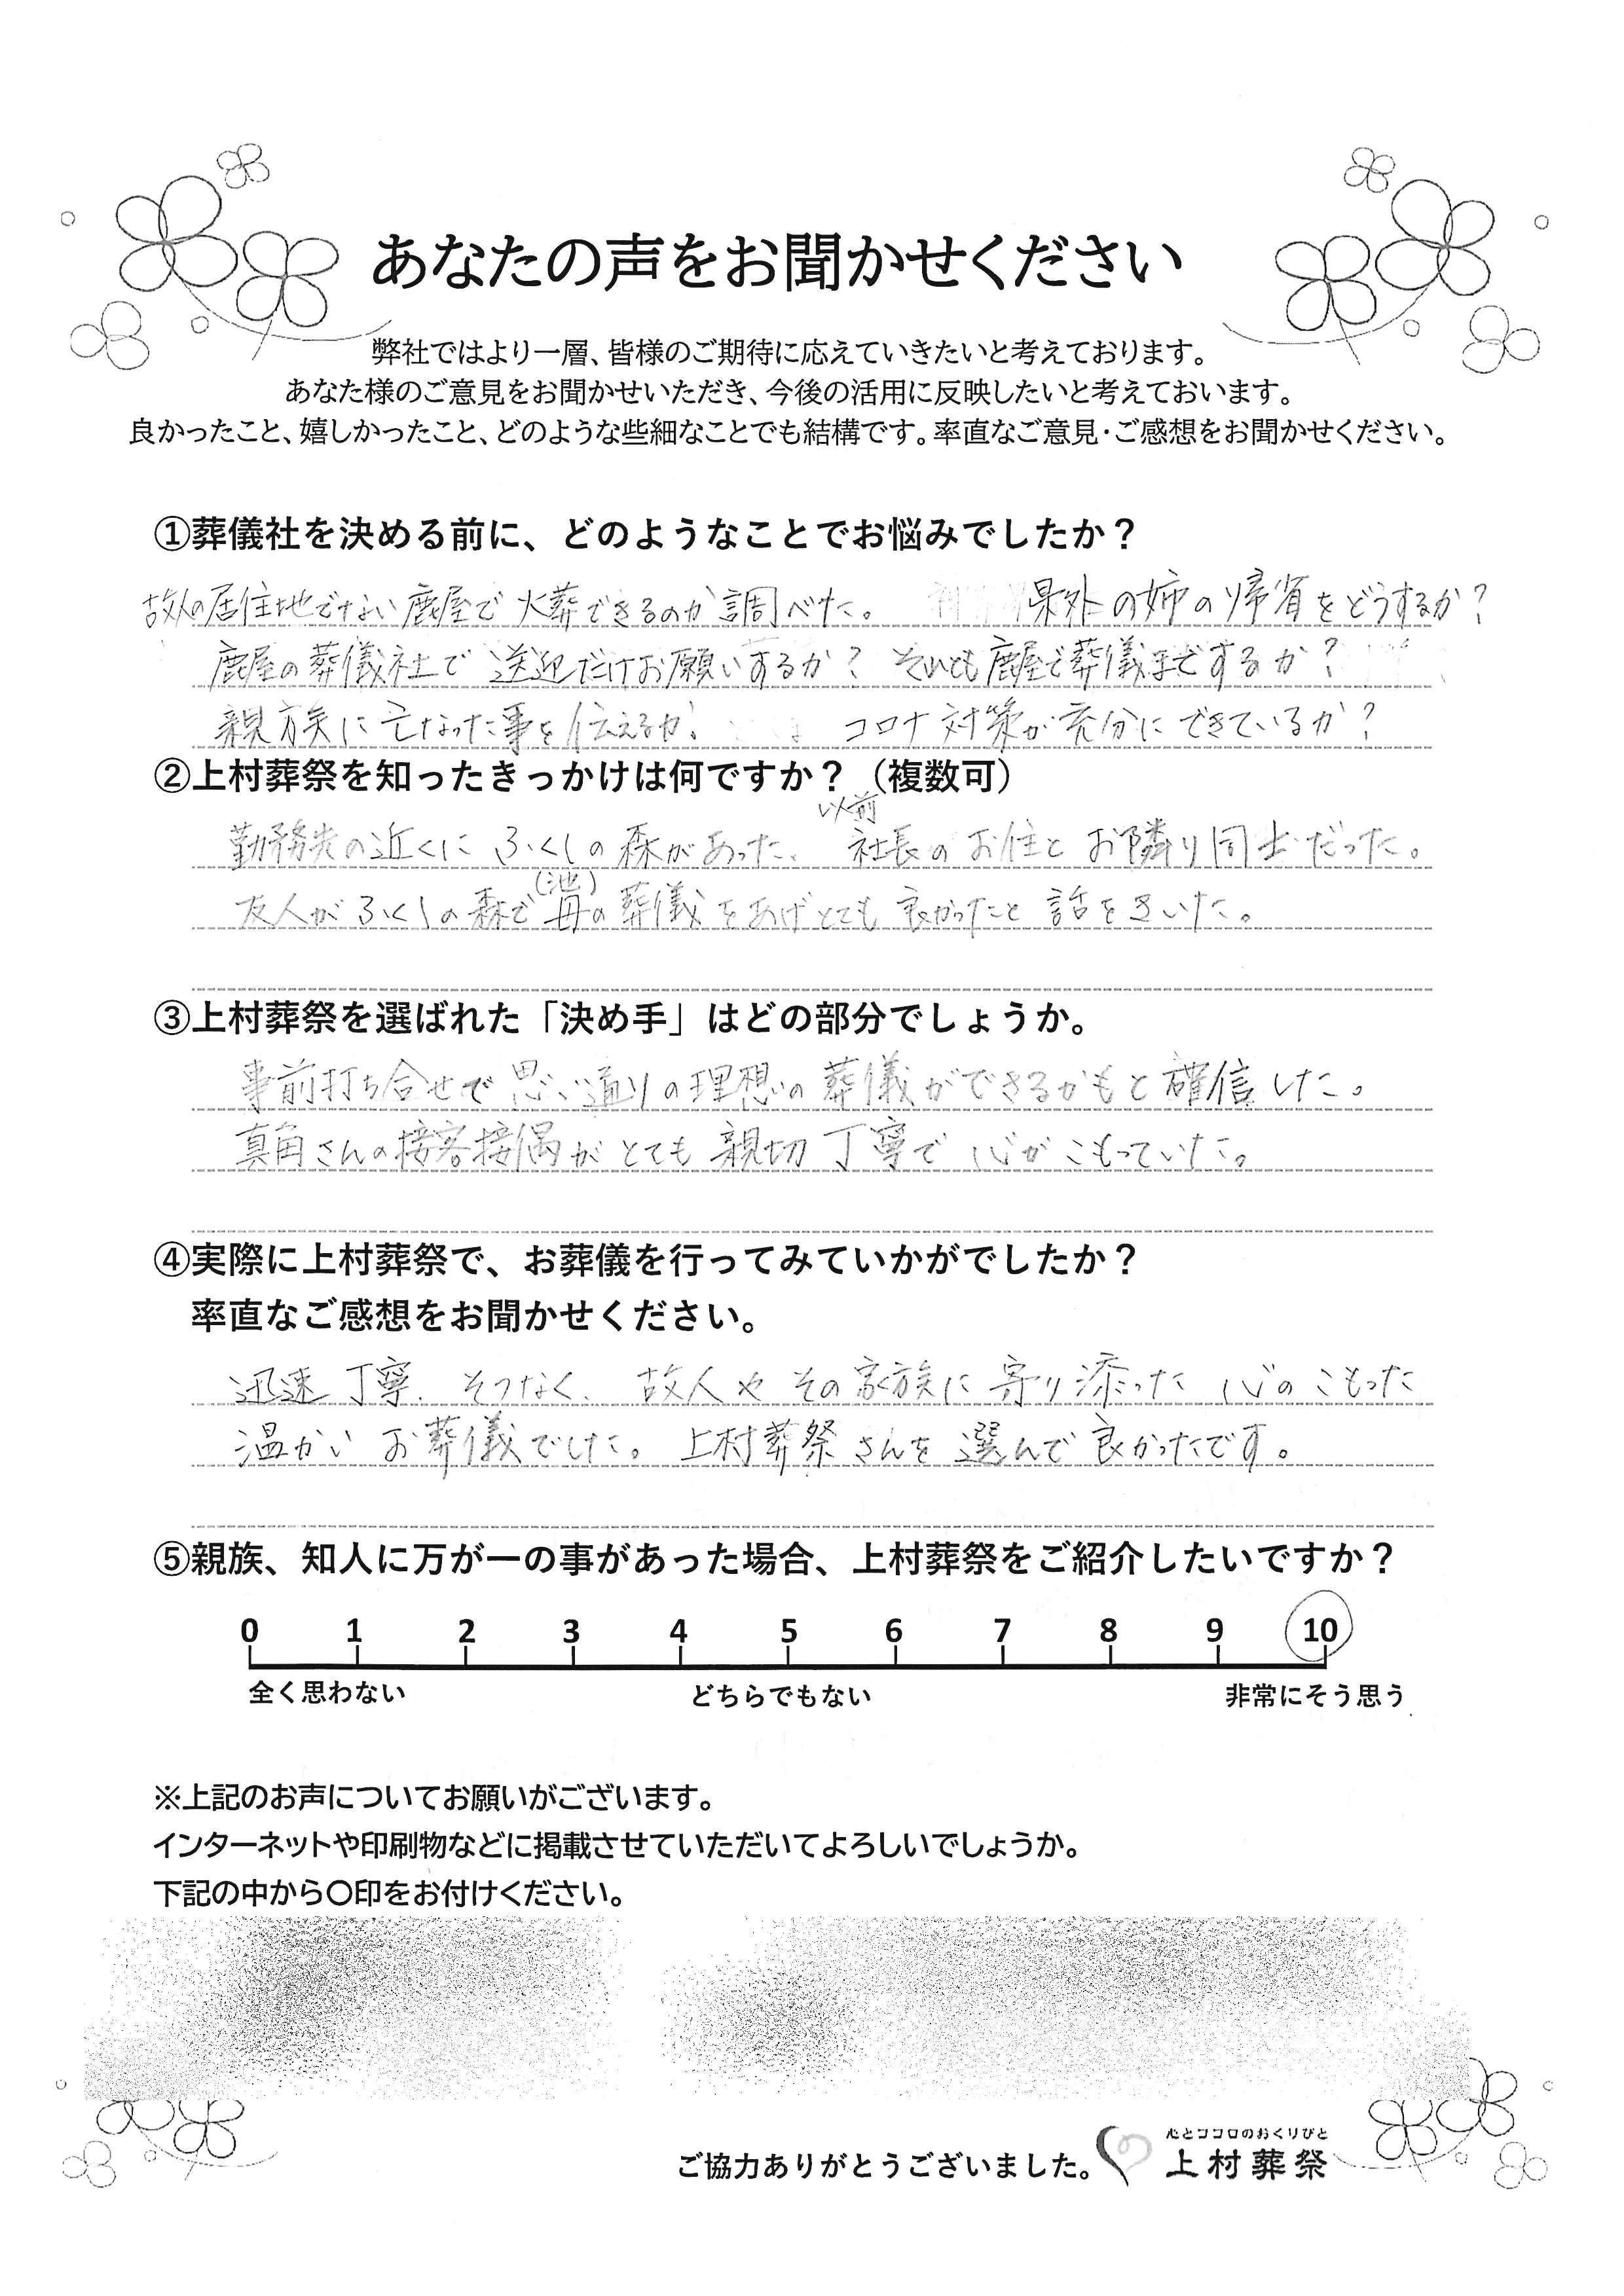 あなたの声をお聞かせください
弊社ではより一層、皆様のご期待に応えていきたいと考えております。
あなた様のご意見をお聞かせいただき、今後の活用に反映したいと考えておいます。
良かったこと、嬉しかったこと、どのような些細なことでも結構です。率直なご意見・ご感想をお聞かせください。
①葬儀社を決める前に、どのようなことでお悩みでしたか？
故人の居住地でない鹿屋で火葬できるのか調べた。 県外の姉の帰省をどうするか？
鹿屋の葬儀社で送迎だけお願いするか？ それとも鹿屋で葬儀までするか？
親族に亡なった事を伝えるか。 コロナ対策が充分にできているか？
②上村葬祭を知ったきっかけは何ですか？（複数可）
以前
勤務先の近くにふくしの森があった、 社長のお住とお隣り同士だった。
(池)
友人がふくしの森で母の葬儀をあげとても良かったと話をきいた。
③上村葬祭を選ばれた「決め手」はどの部分でしょうか。
事前打ち合せで思い通りの理想の葬儀ができるかもと確信した。
真角さんの接客接偶がとても親切丁寧で心がこもっていた。
④実際に上村葬祭で、お葬儀を行ってみていかがでしたか？
率直なご感想をお聞かせください。
迅速丁寧、そつなく、故人やその家族に寄り添った心のこもった
温かいお葬儀でした。上村葬祭さんを選んで良かったです。
⑤親族、知人に万が一の事があった場合、上村葬祭をご紹介したいですか？
0 1 2 3 4 5 6 7 8 9 10
全く思わない どちらでもない 非常にそう思う
※上記のお声についてお願いがございます。
インターネットや印刷物などに掲載させていただいてよろしいでしょうか。
下記の中から〇印をお付けください。
心とココロのおくりびと
ご協力ありがとうございました。 上村葬祭